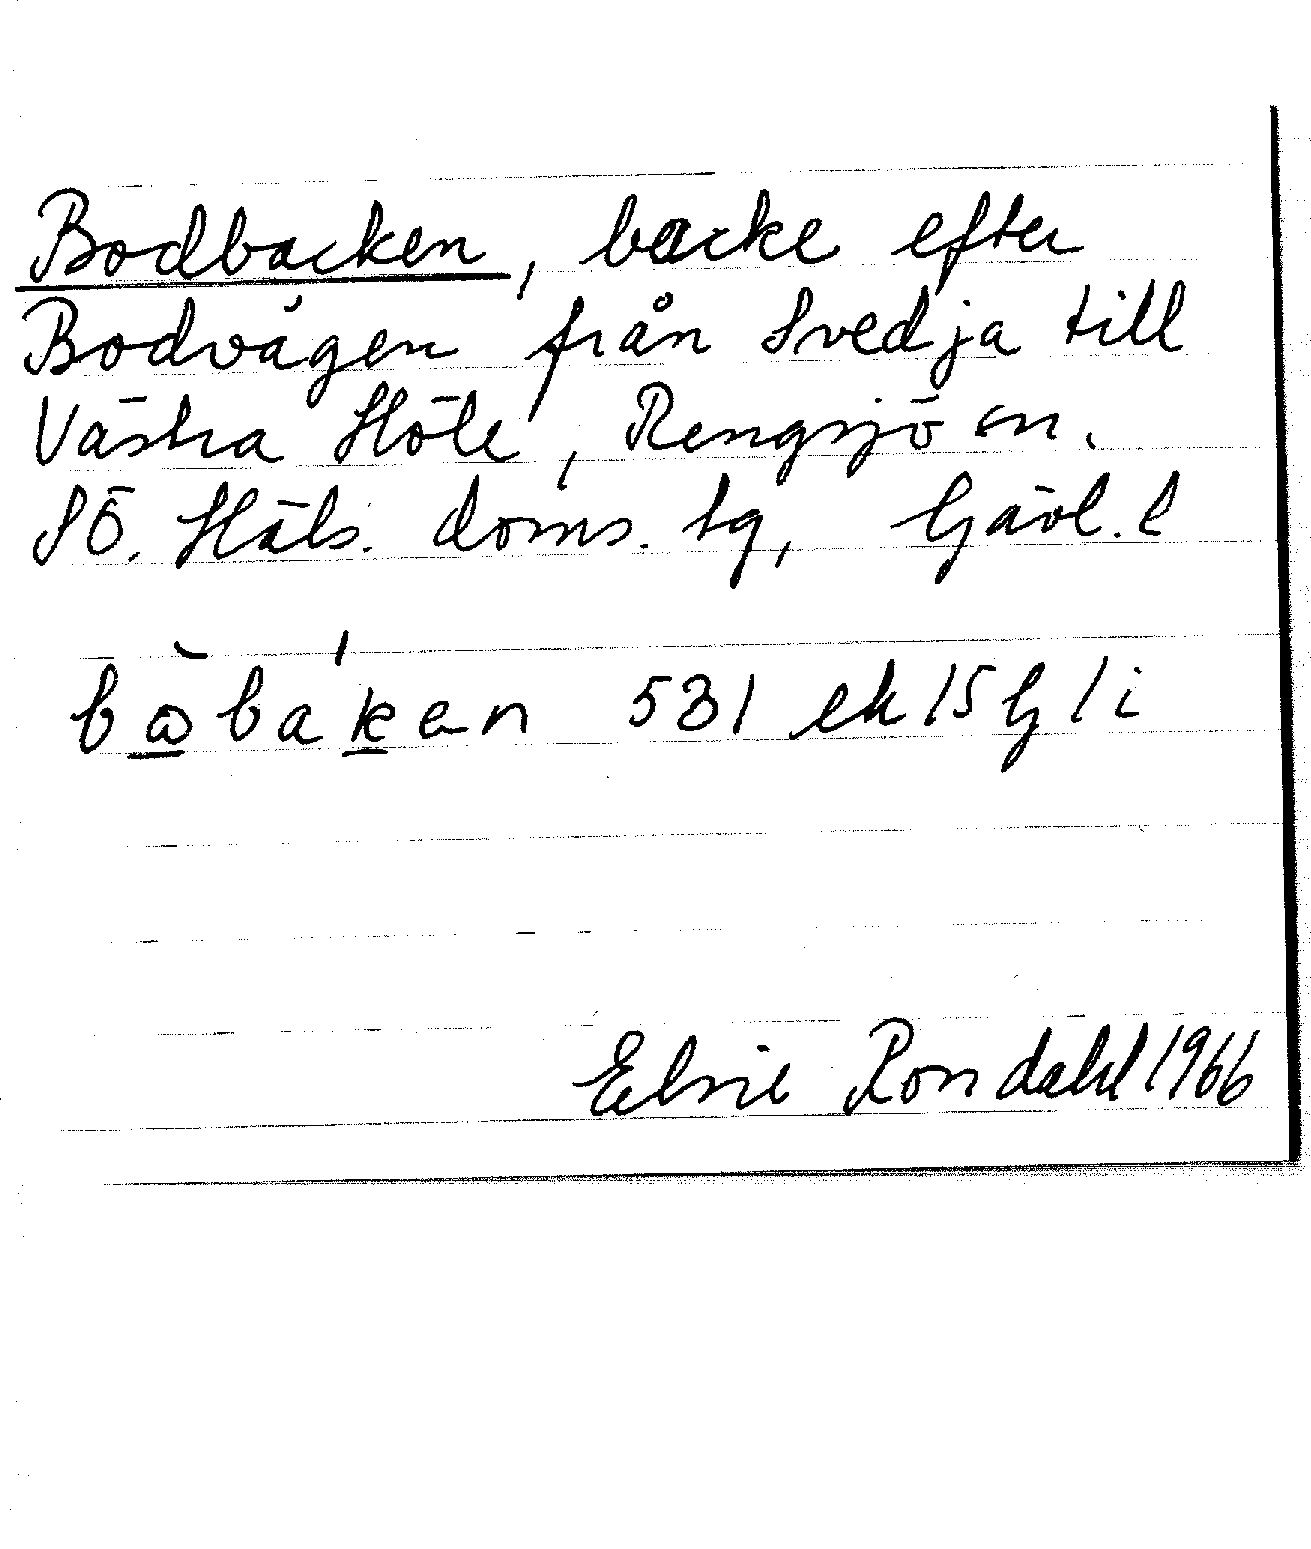 Bodbacken, backe efter
Bodvägen från Svedja till
Västra Höle, Rengsjö sn.
SÖ. Häls. doms. tg, Gävl. l
bò̲baḱ̲en 531 ek 15 G 1 i
Elsie Rondahl 1966